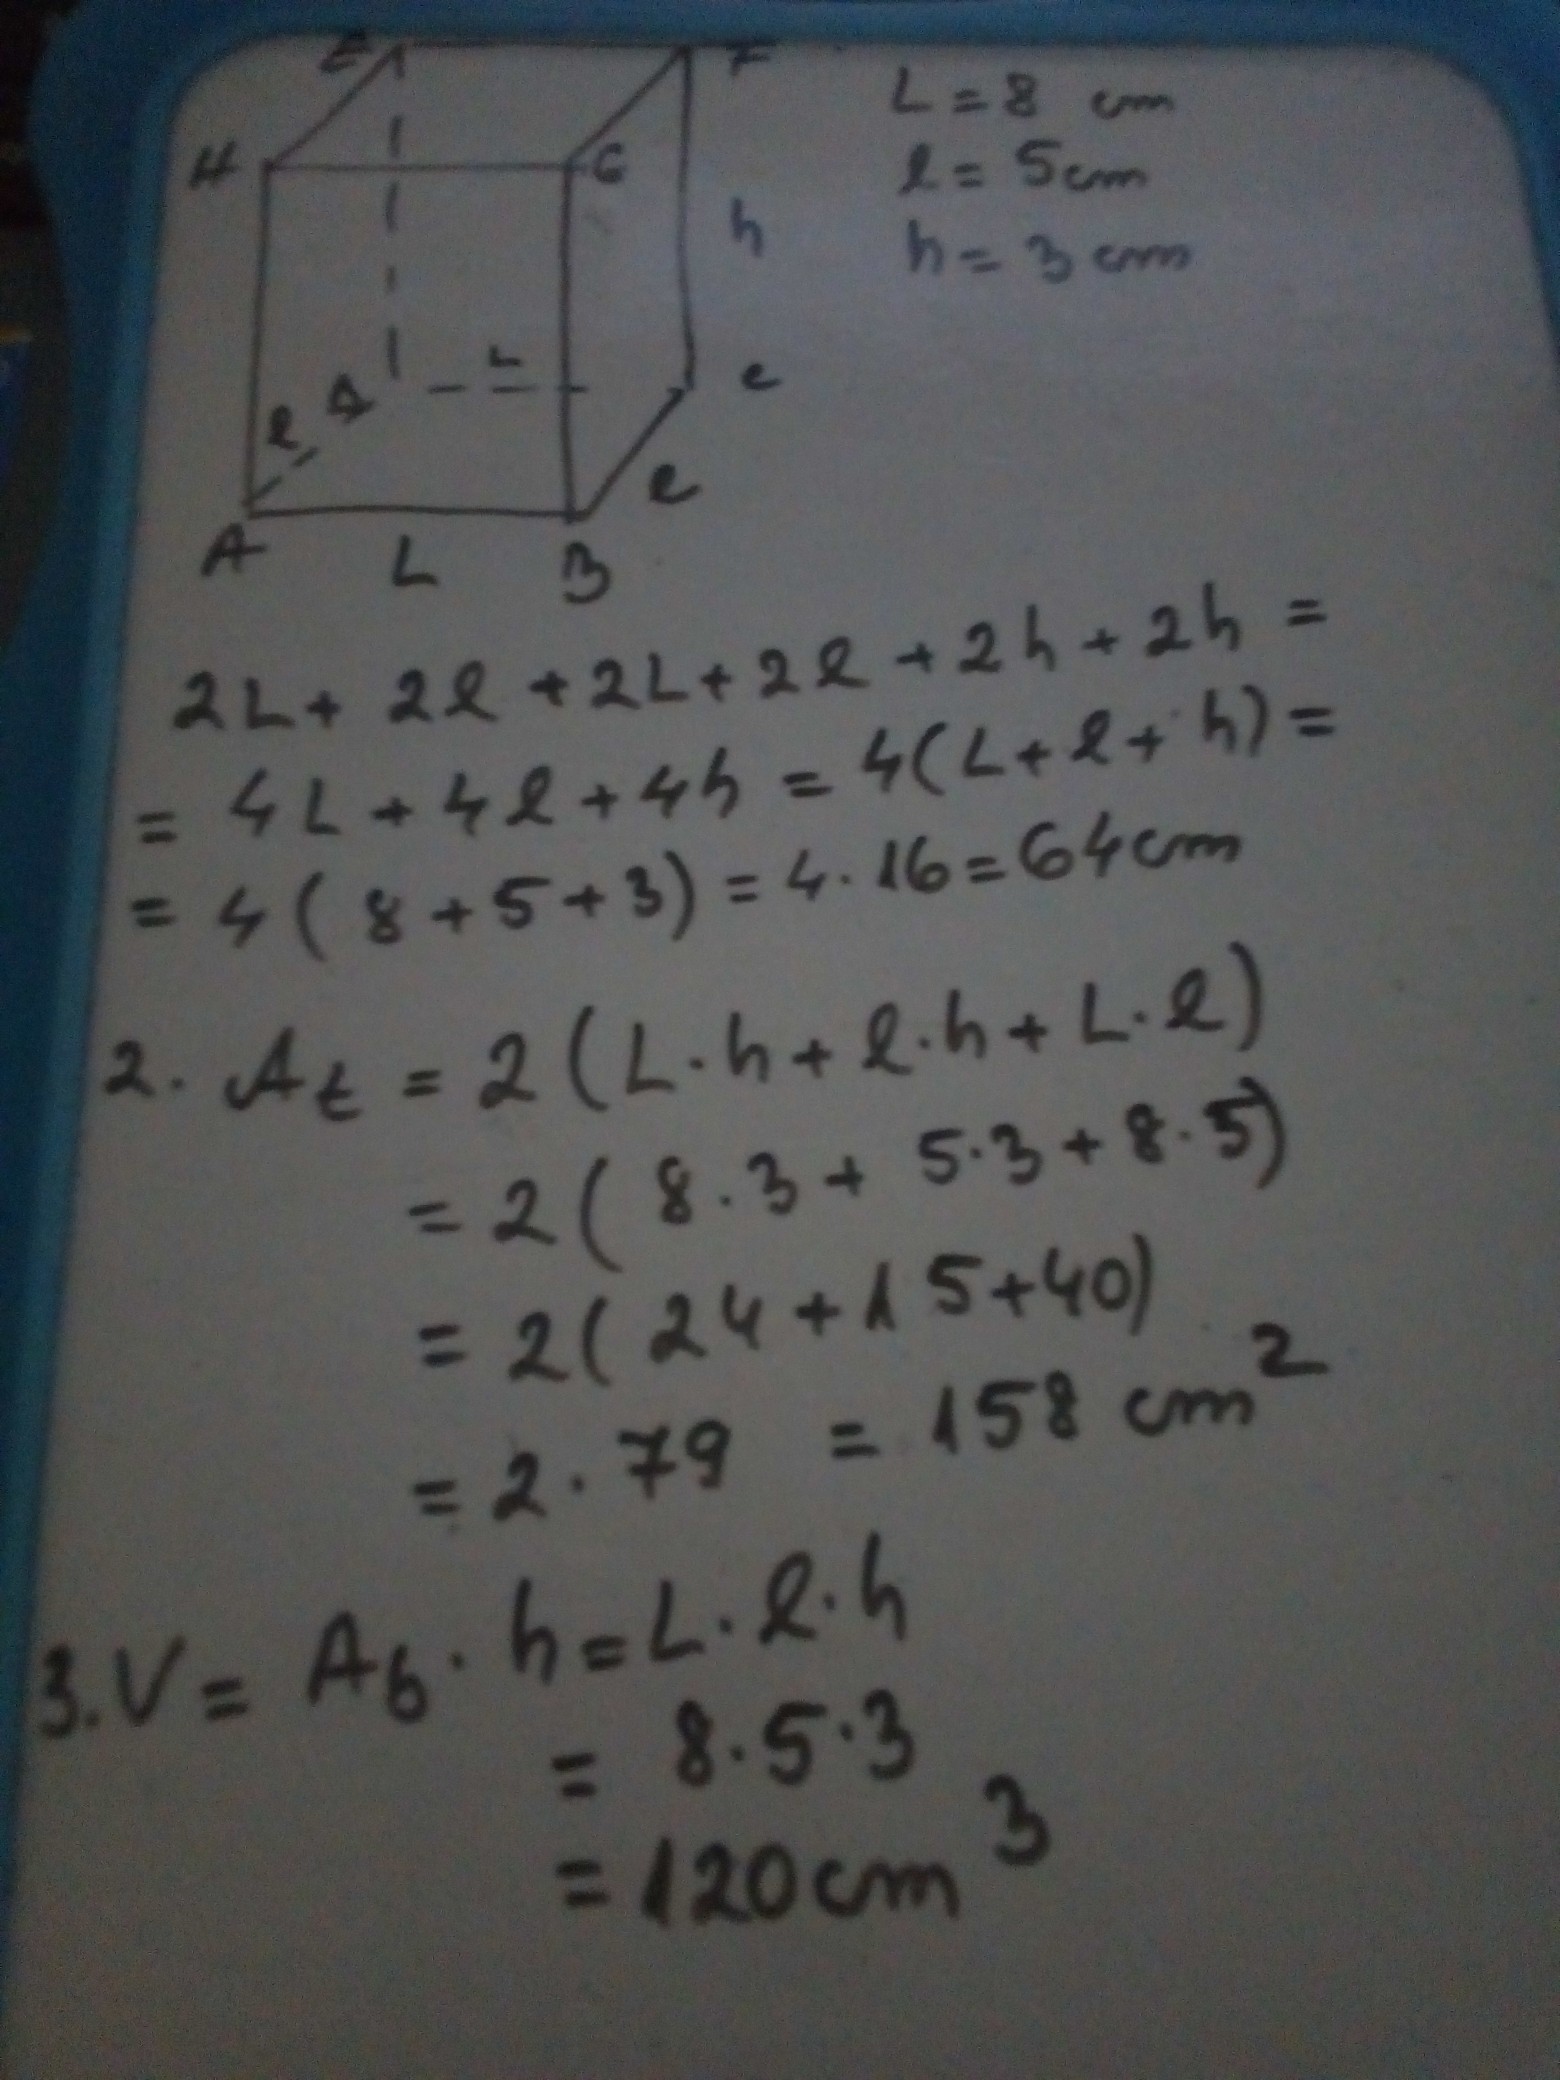 E F
L = 8 cm
H G
l = 5cm
h
h = 3 cm
L
D c
l
l
A L B
2L + 2l + 2L + 2l + 2h + 2h =
= 4L + 4l + 4h = 4(L + l + h) =
= 4( 8 + 5 + 3) = 4 · 16 = 64cm
2. At = 2(L·h + l·h + L·l)
= 2( 8·3 + 5·3 + 8·5)
= 2( 24 + 15 + 40)
= 2·79 = 158 cm²
3. V = Ab · h = L·l·h
= 8·5·3
= 120cm³